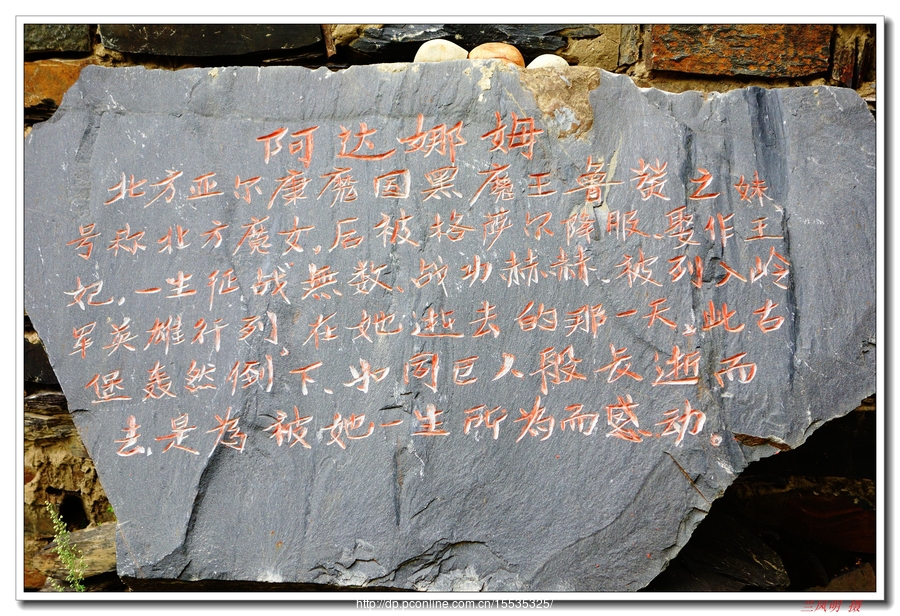 阿达娜姆
北方亚尔康魔国黑魔王鲁赞之妹
号称北方魔女。后被格萨尔降服、娶作王
妃,一生征战無数、战功赫赫、被列入岭
军英雄行列。在她逝去的那一天,此古
堡轰然倒下、如同巨人般长逝而
去,是為被她一生所为而感动。
http://dp.pconline.com.cn/15535325/
三风明 摄